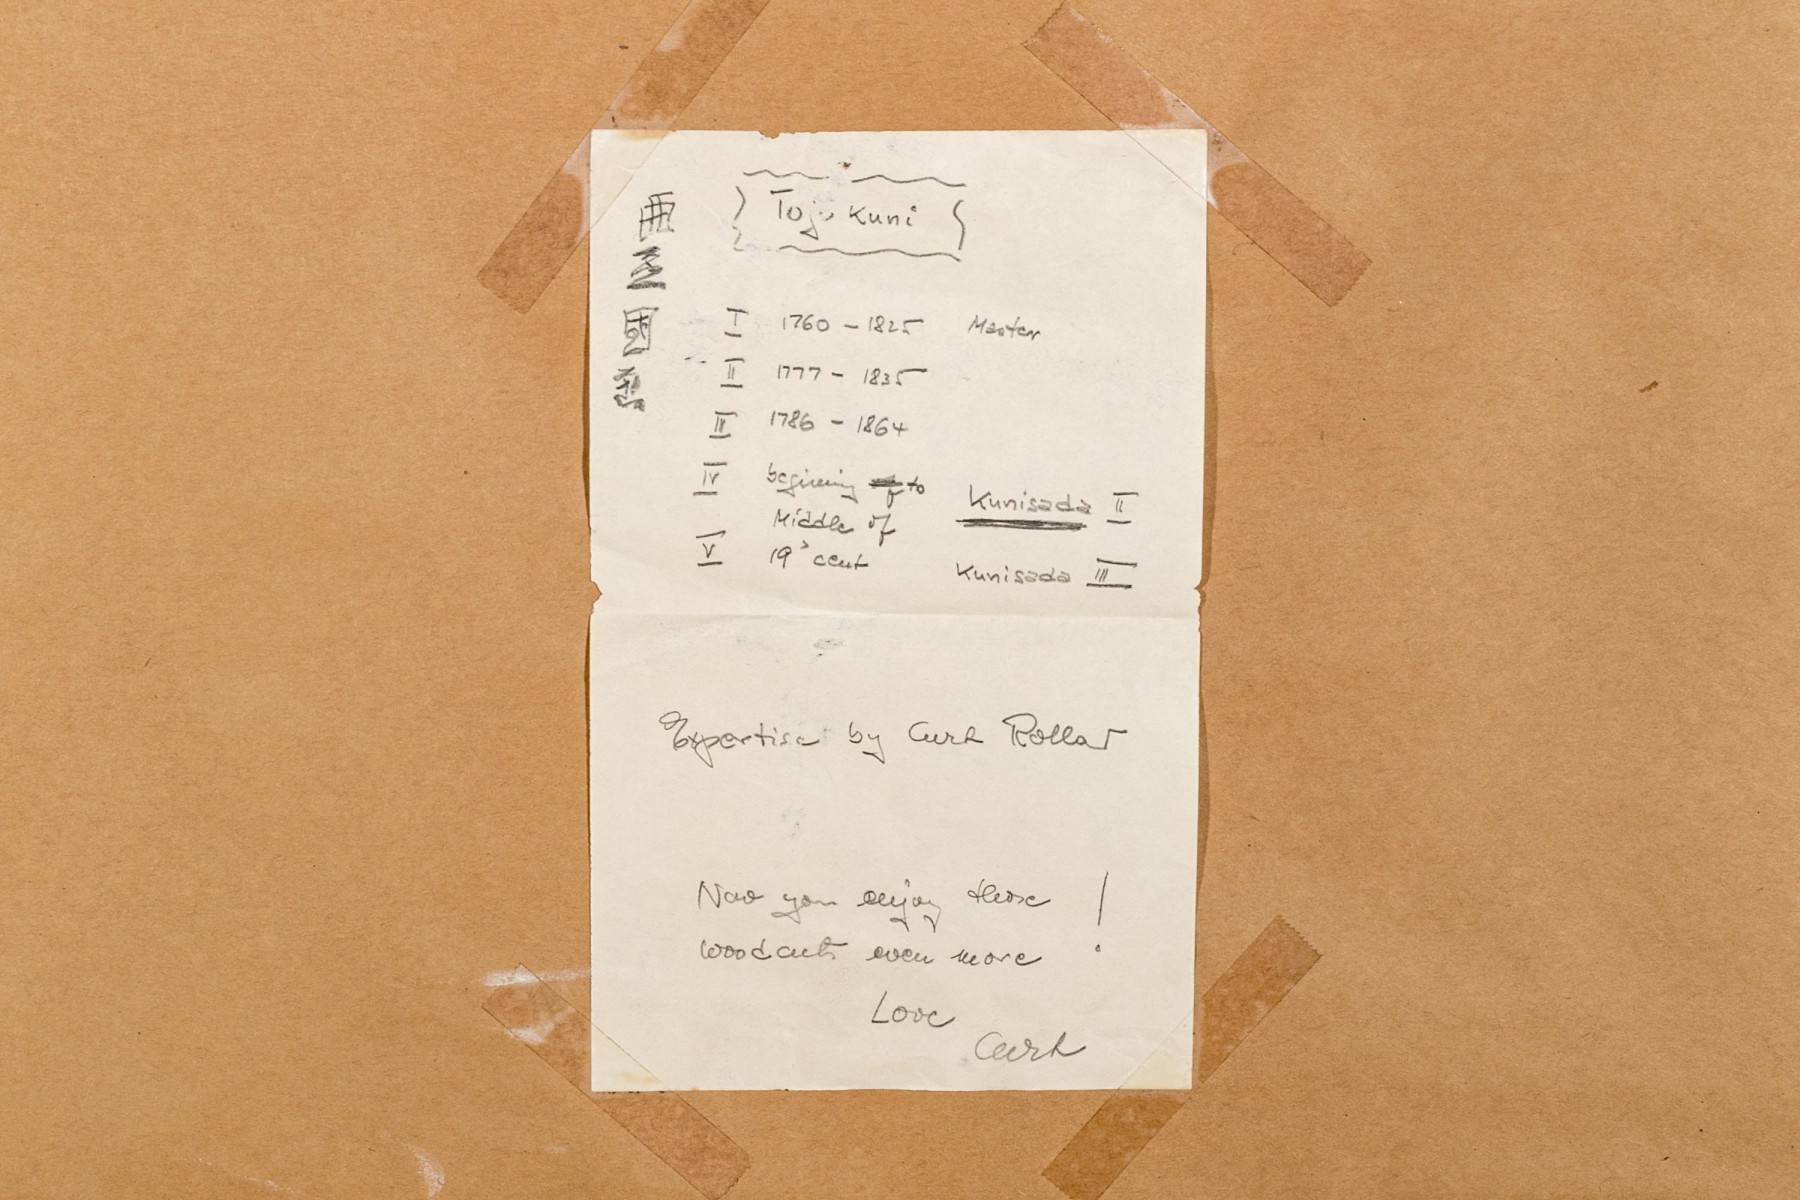 Kuni
國
I 1760 – 1825 Master
II 1777 – 1835
III 1786 – 1864
IV beginning to
Middle of
Kunisada II
V 19' cent
Kunisada III
Expertise by Curt
Now you enjoy those !
woodcuts even more
Love
Curt